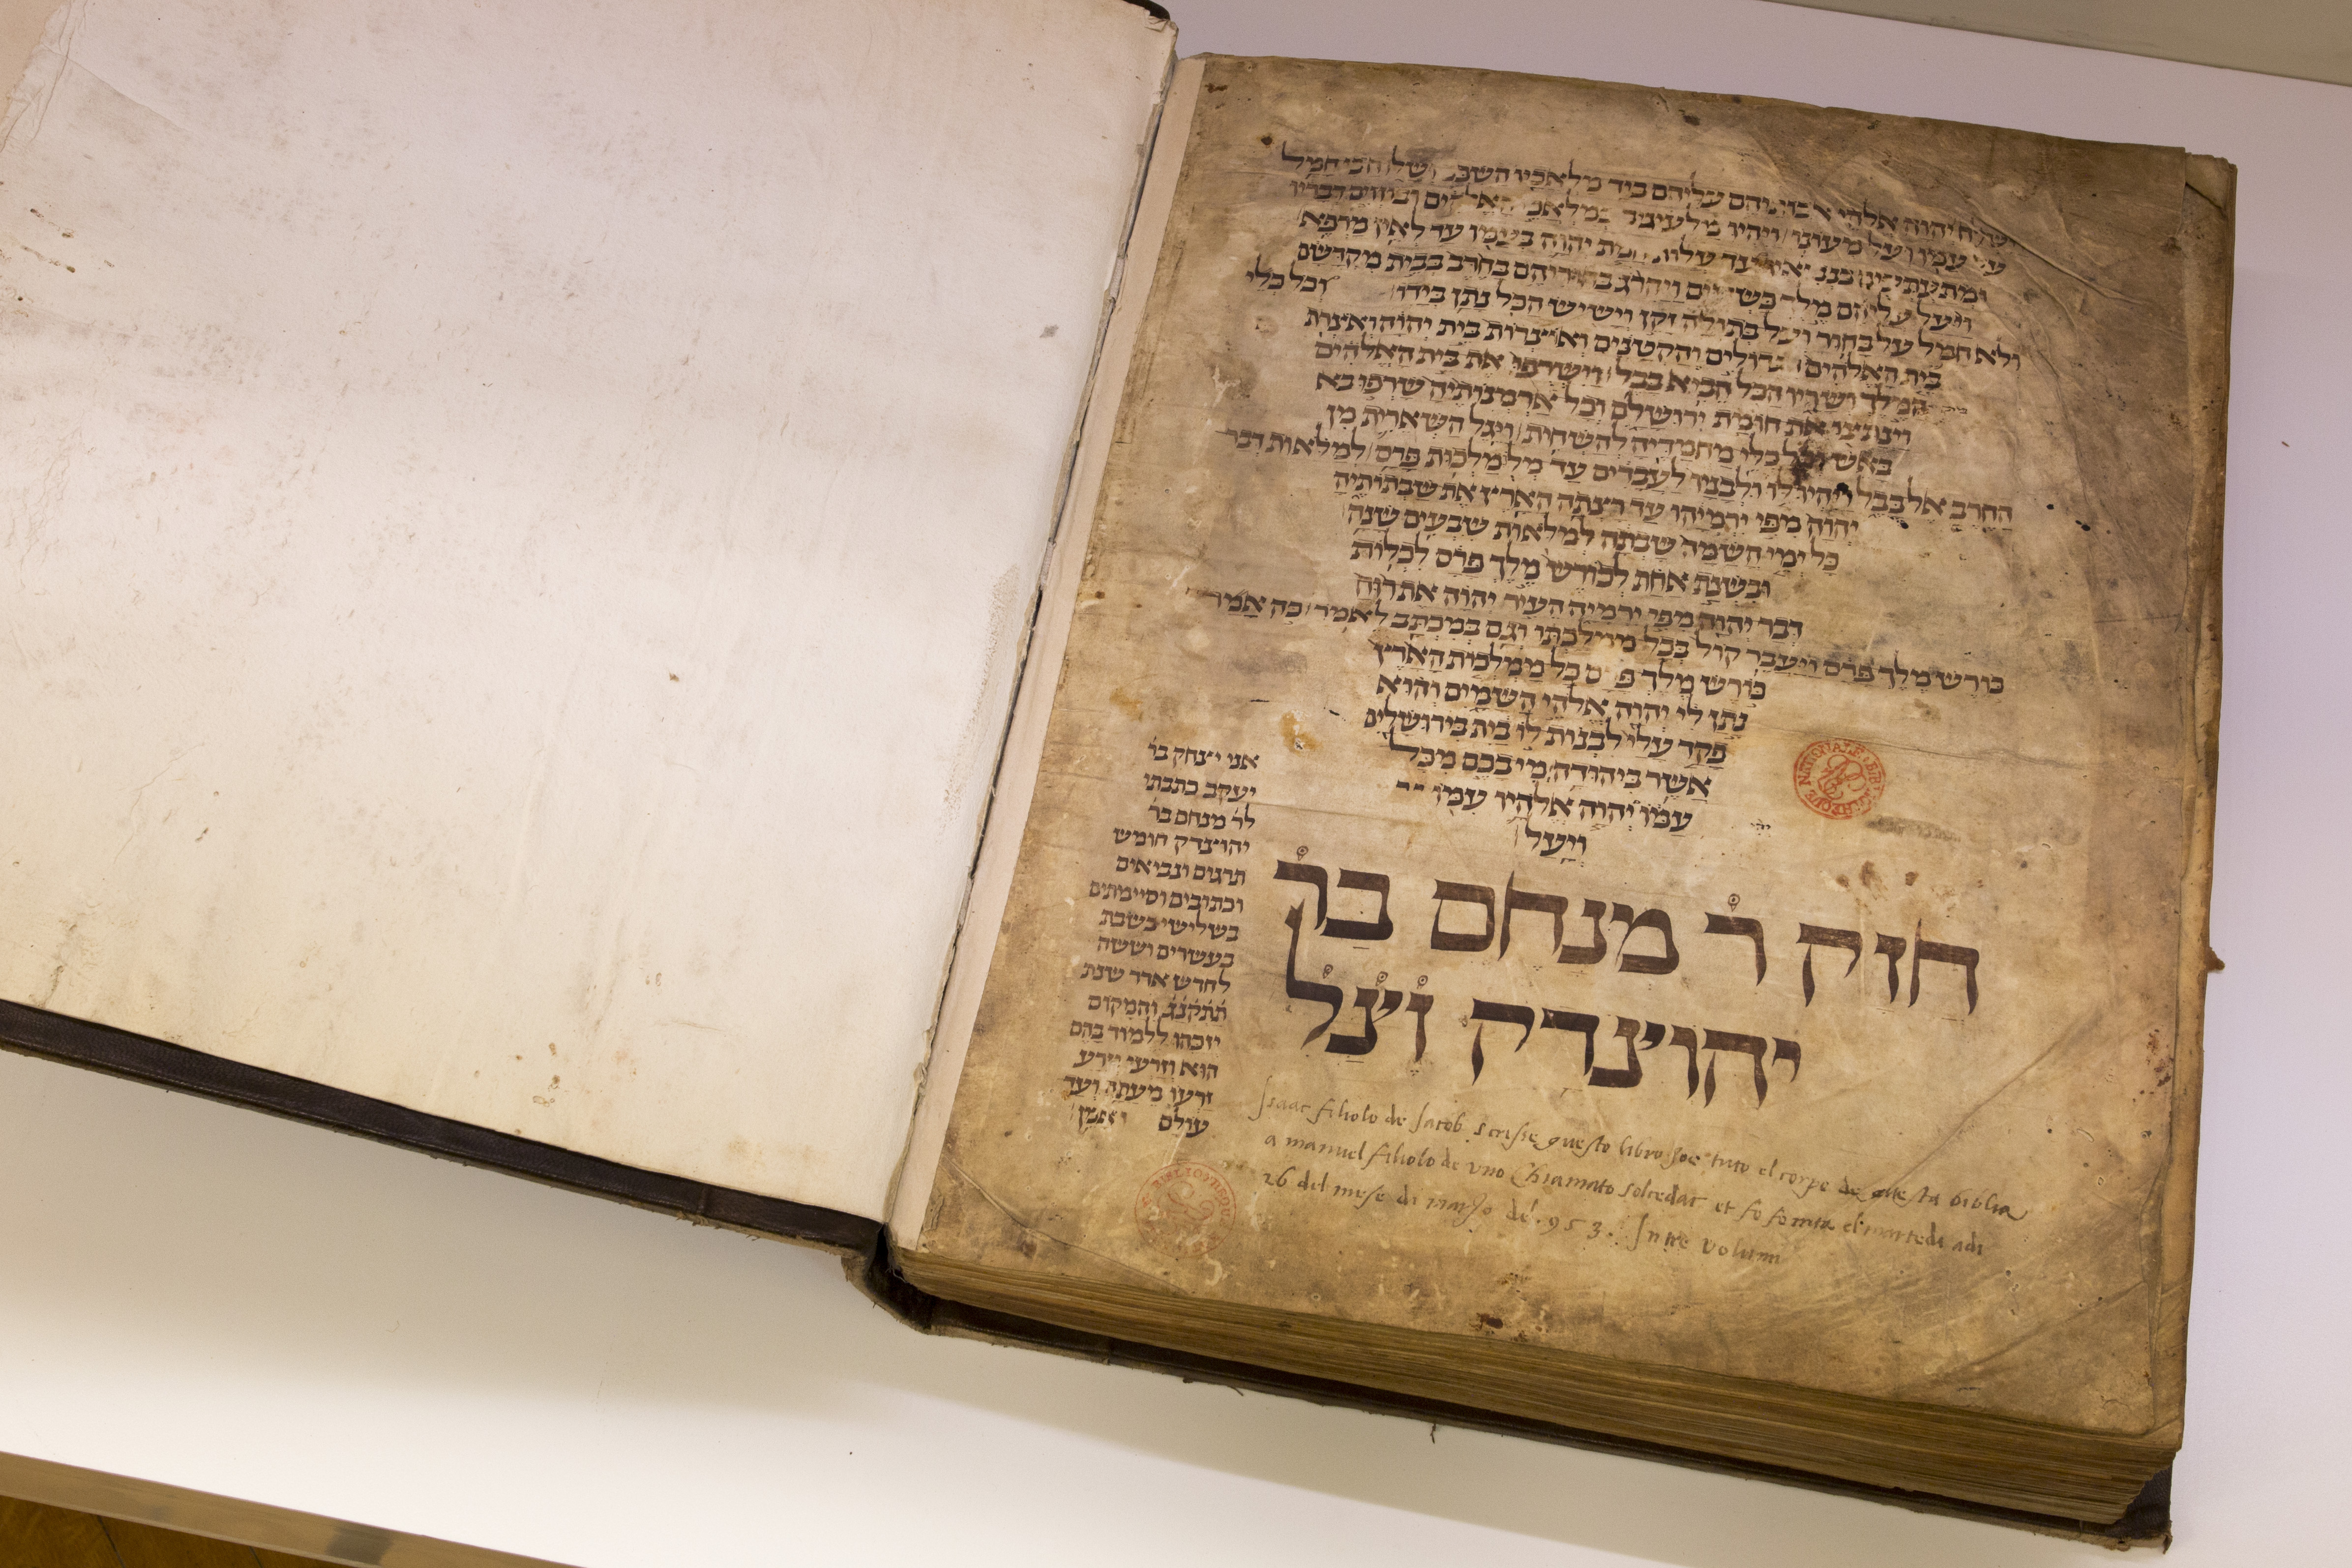 וישלח יהוה אלהי אבותיהם עליהם ביד מלאכיו השכם ושלוח כי חמל
על עמו ועל מעונו ויהיו מלעיבים במלאכי האלהים ובוזים דבריו
ומתעתעים בנביאיו עד עלות חמת יהוה בעמו עד לאין מרפא
ויעל עליהם מלך כשדיים ויהרג בחוריהם בחרב בבית מקדשם
ולא חמל על בחור ועל בתולה זקן וישיש הכל נתן בידו וכל כלי
בית האלהים הגדולים והקטנים ואוצרות בית יהוה ואצרות
המלך ושריו הכל הביא בבל וישרפו את בית האלהים
וינתצו את חומת ירושלם וכל ארמנותיה שרפו בא
באש וכל כלי מחמדיה להשחית ויגל השארית מן
החרב אל בבל ויהיו לו ולבניו לעבדים עד מלך מלכות פרס למלאות דבר
יהוה מפי ירמיהו עד רצתה הארץ את שבתותיה
כל ימי השמה שבתה למלאות שבעים שנה
ובשנת אחת לכורש מלך פרס לכלות
דבר יהוה מפי ירמיה העיר יהוה את רוח
כורש מלך פרס ויעבר קול בכל מלכתו וגם במכתב לאמר כה אמר
כורש מלך פרס כל ממלכות הארץ
נתן לי יהוה אלהי השמים והוא
פקד עלי לבנות לו בית בירושלים
אשר ביהודה מי בכם מכל
עמו יהוה אלהיו עמו
ויעל
חזק ר מנחם בר
יהוצדק וצל
אני יצחק בר
יעקב כתבתי
לר מנחם בר
יהוצדק חומש
תרגום ונביאים
וכתובים וסיימתים
בשלישי בשבת
בעשרים וששה
לחדש אדר שנת
תתקנג והמקום
יזכהו ללמוד בהם
הוא וזרעו וזרע
זרעו מעתה ועד
עולם אמן
Isaac filiolo de Jacob scrisse questo libro zoe tuto el corpo de questa biblia
a manuel filiolo de uno Chiamato solcedac et fo fornita el martedi adi
26 del mese di marzo del 953. In tre volumi
BIBLIOTHEQUE NATIONALE
BIBLIOTHEQUE